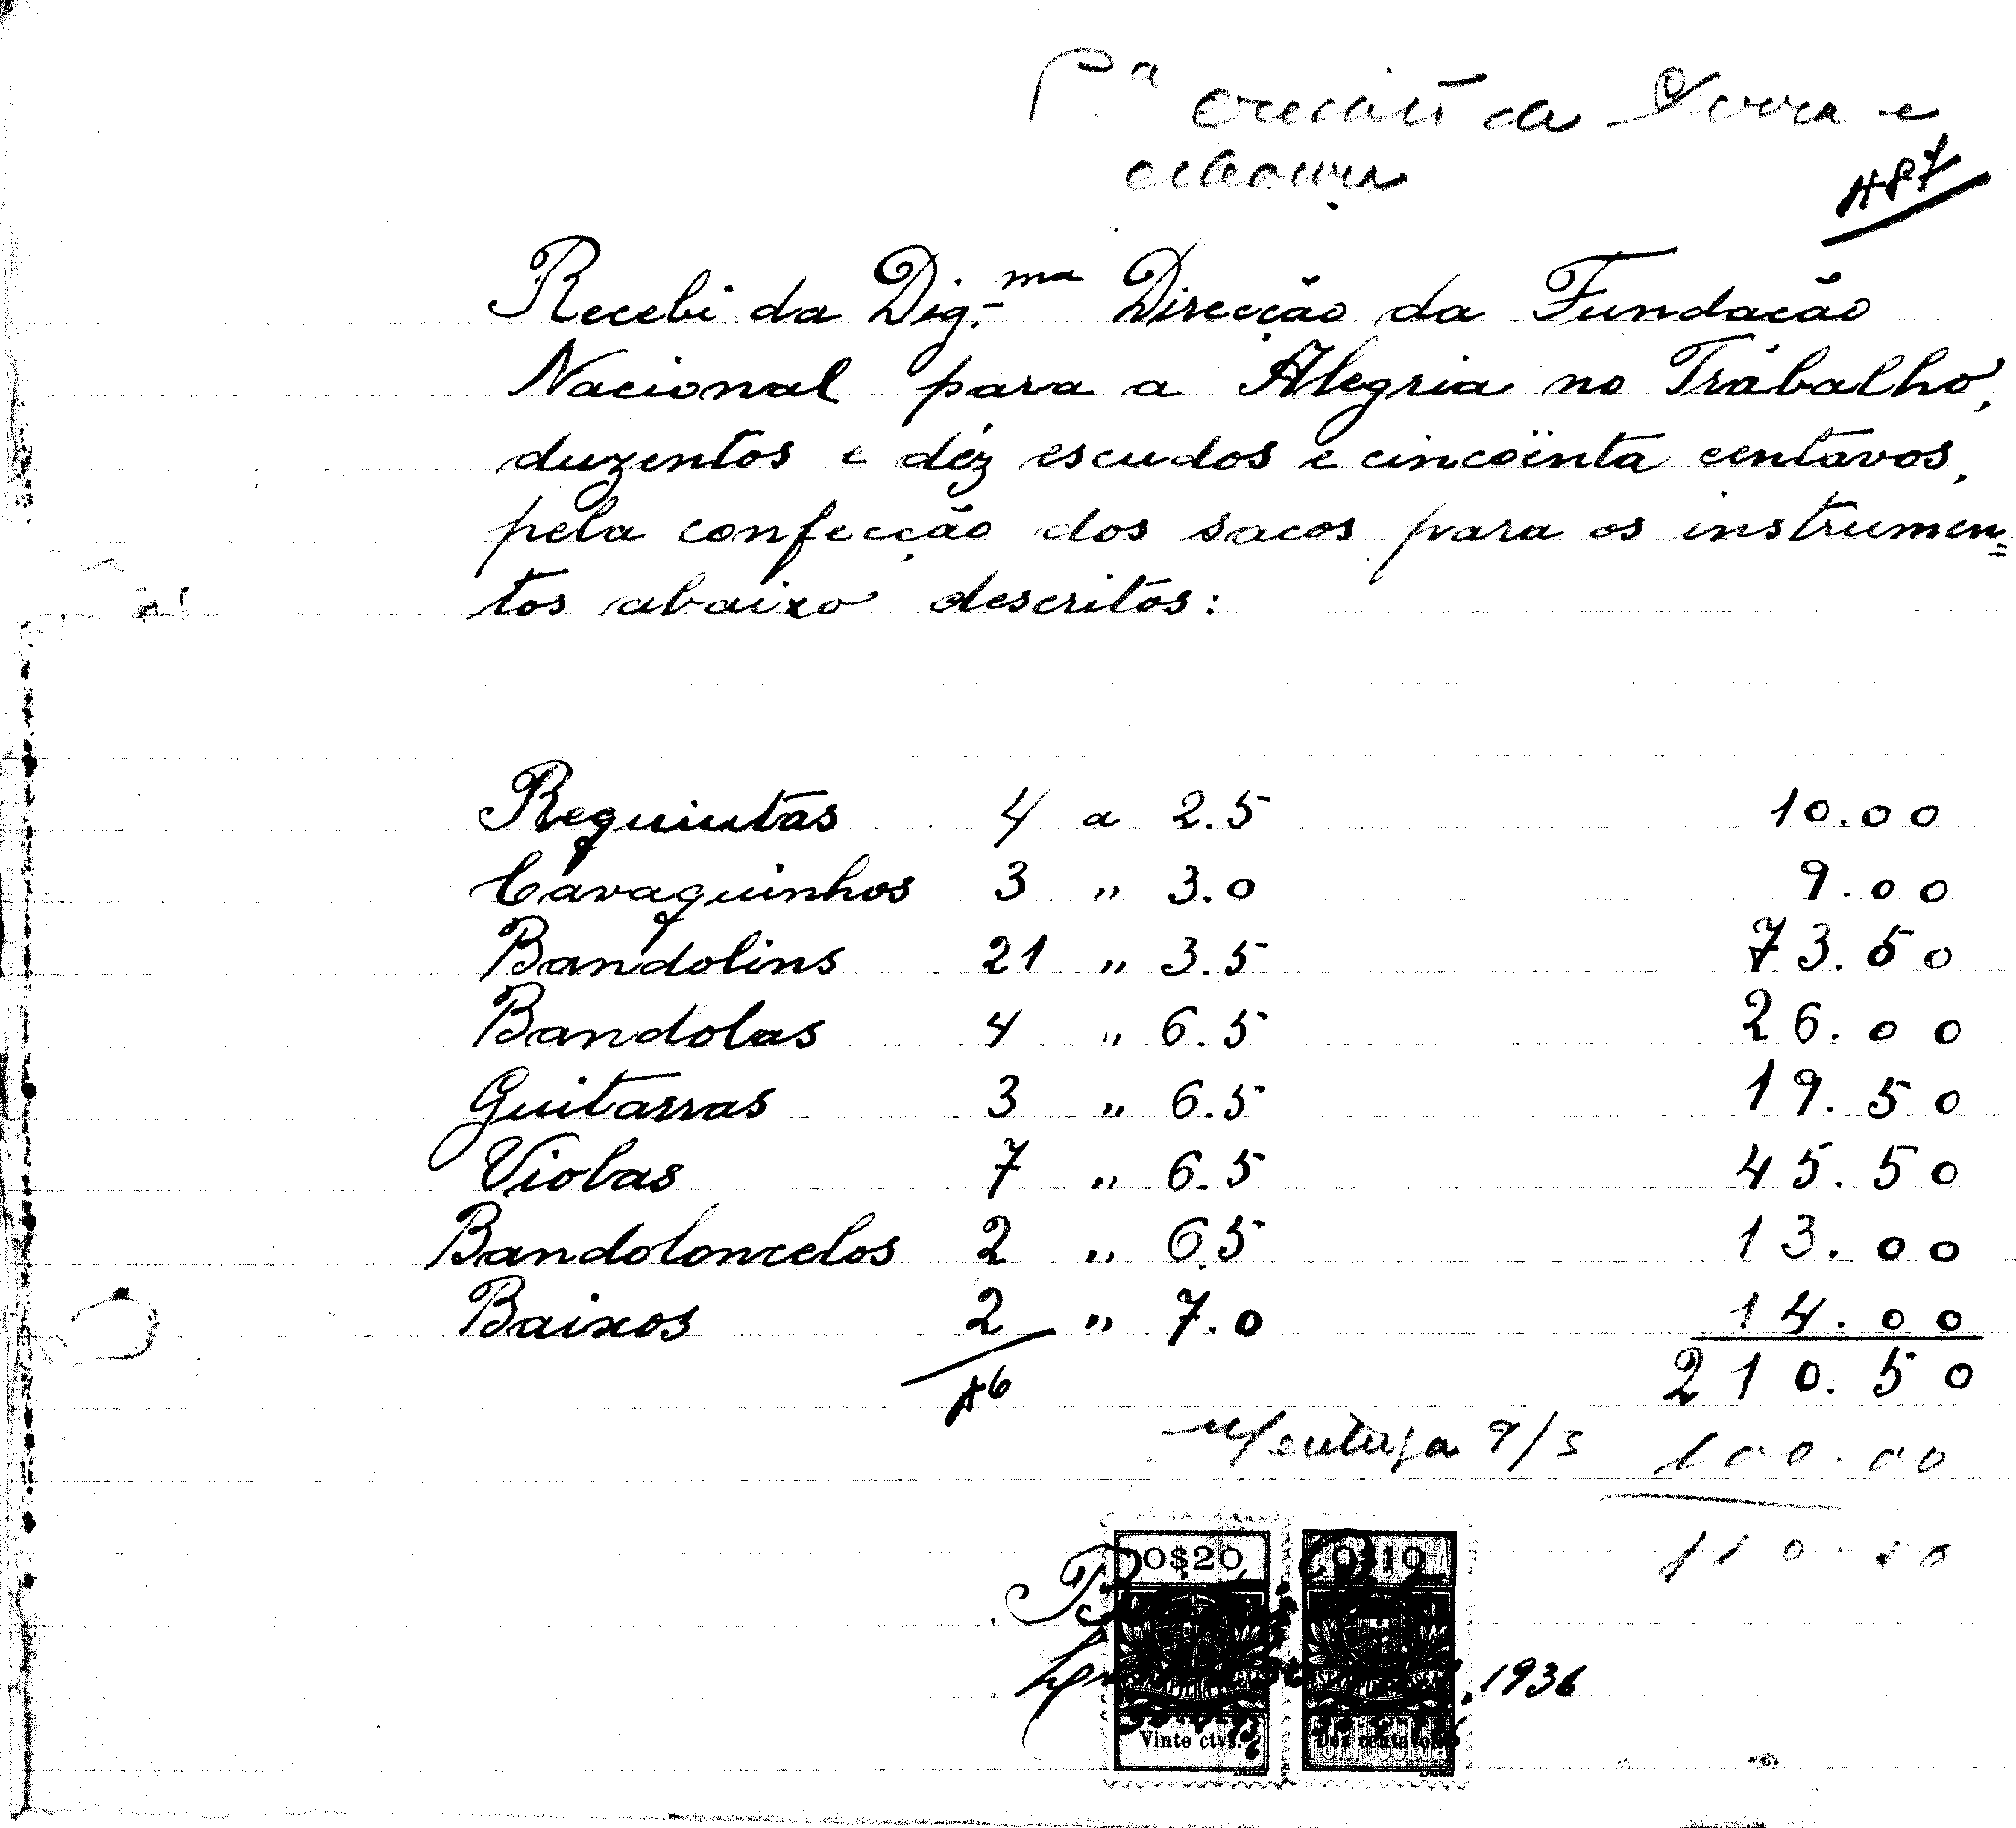 P.ª
da
e
487
Recebi da Dig.ma Direcção da Fundação
Nacional para a Alegria no Trabalho,
duzentos e déz escudos e cincoënta centavos,
pela confecção dos sacos para os instrumen=
tos abaixo descritos:
Requintas 4 a 2.5 10.00
Cavaquinhos 3 " 3.0 9.00
Bandolins 21 " 3.5 73.50
Bandolas 4 " 6.5 26.00
Guitarras 3 " 6.5 19.50
Violas 7 " 6.5 45.50
Bandoloncelos 2 " 6.5 13.00
Baixos 2 " 7.0 14.00
46 210.50
9/3 100.00
110.50
0$20 0$10
1936
Vinte ctvs. Dez centavos